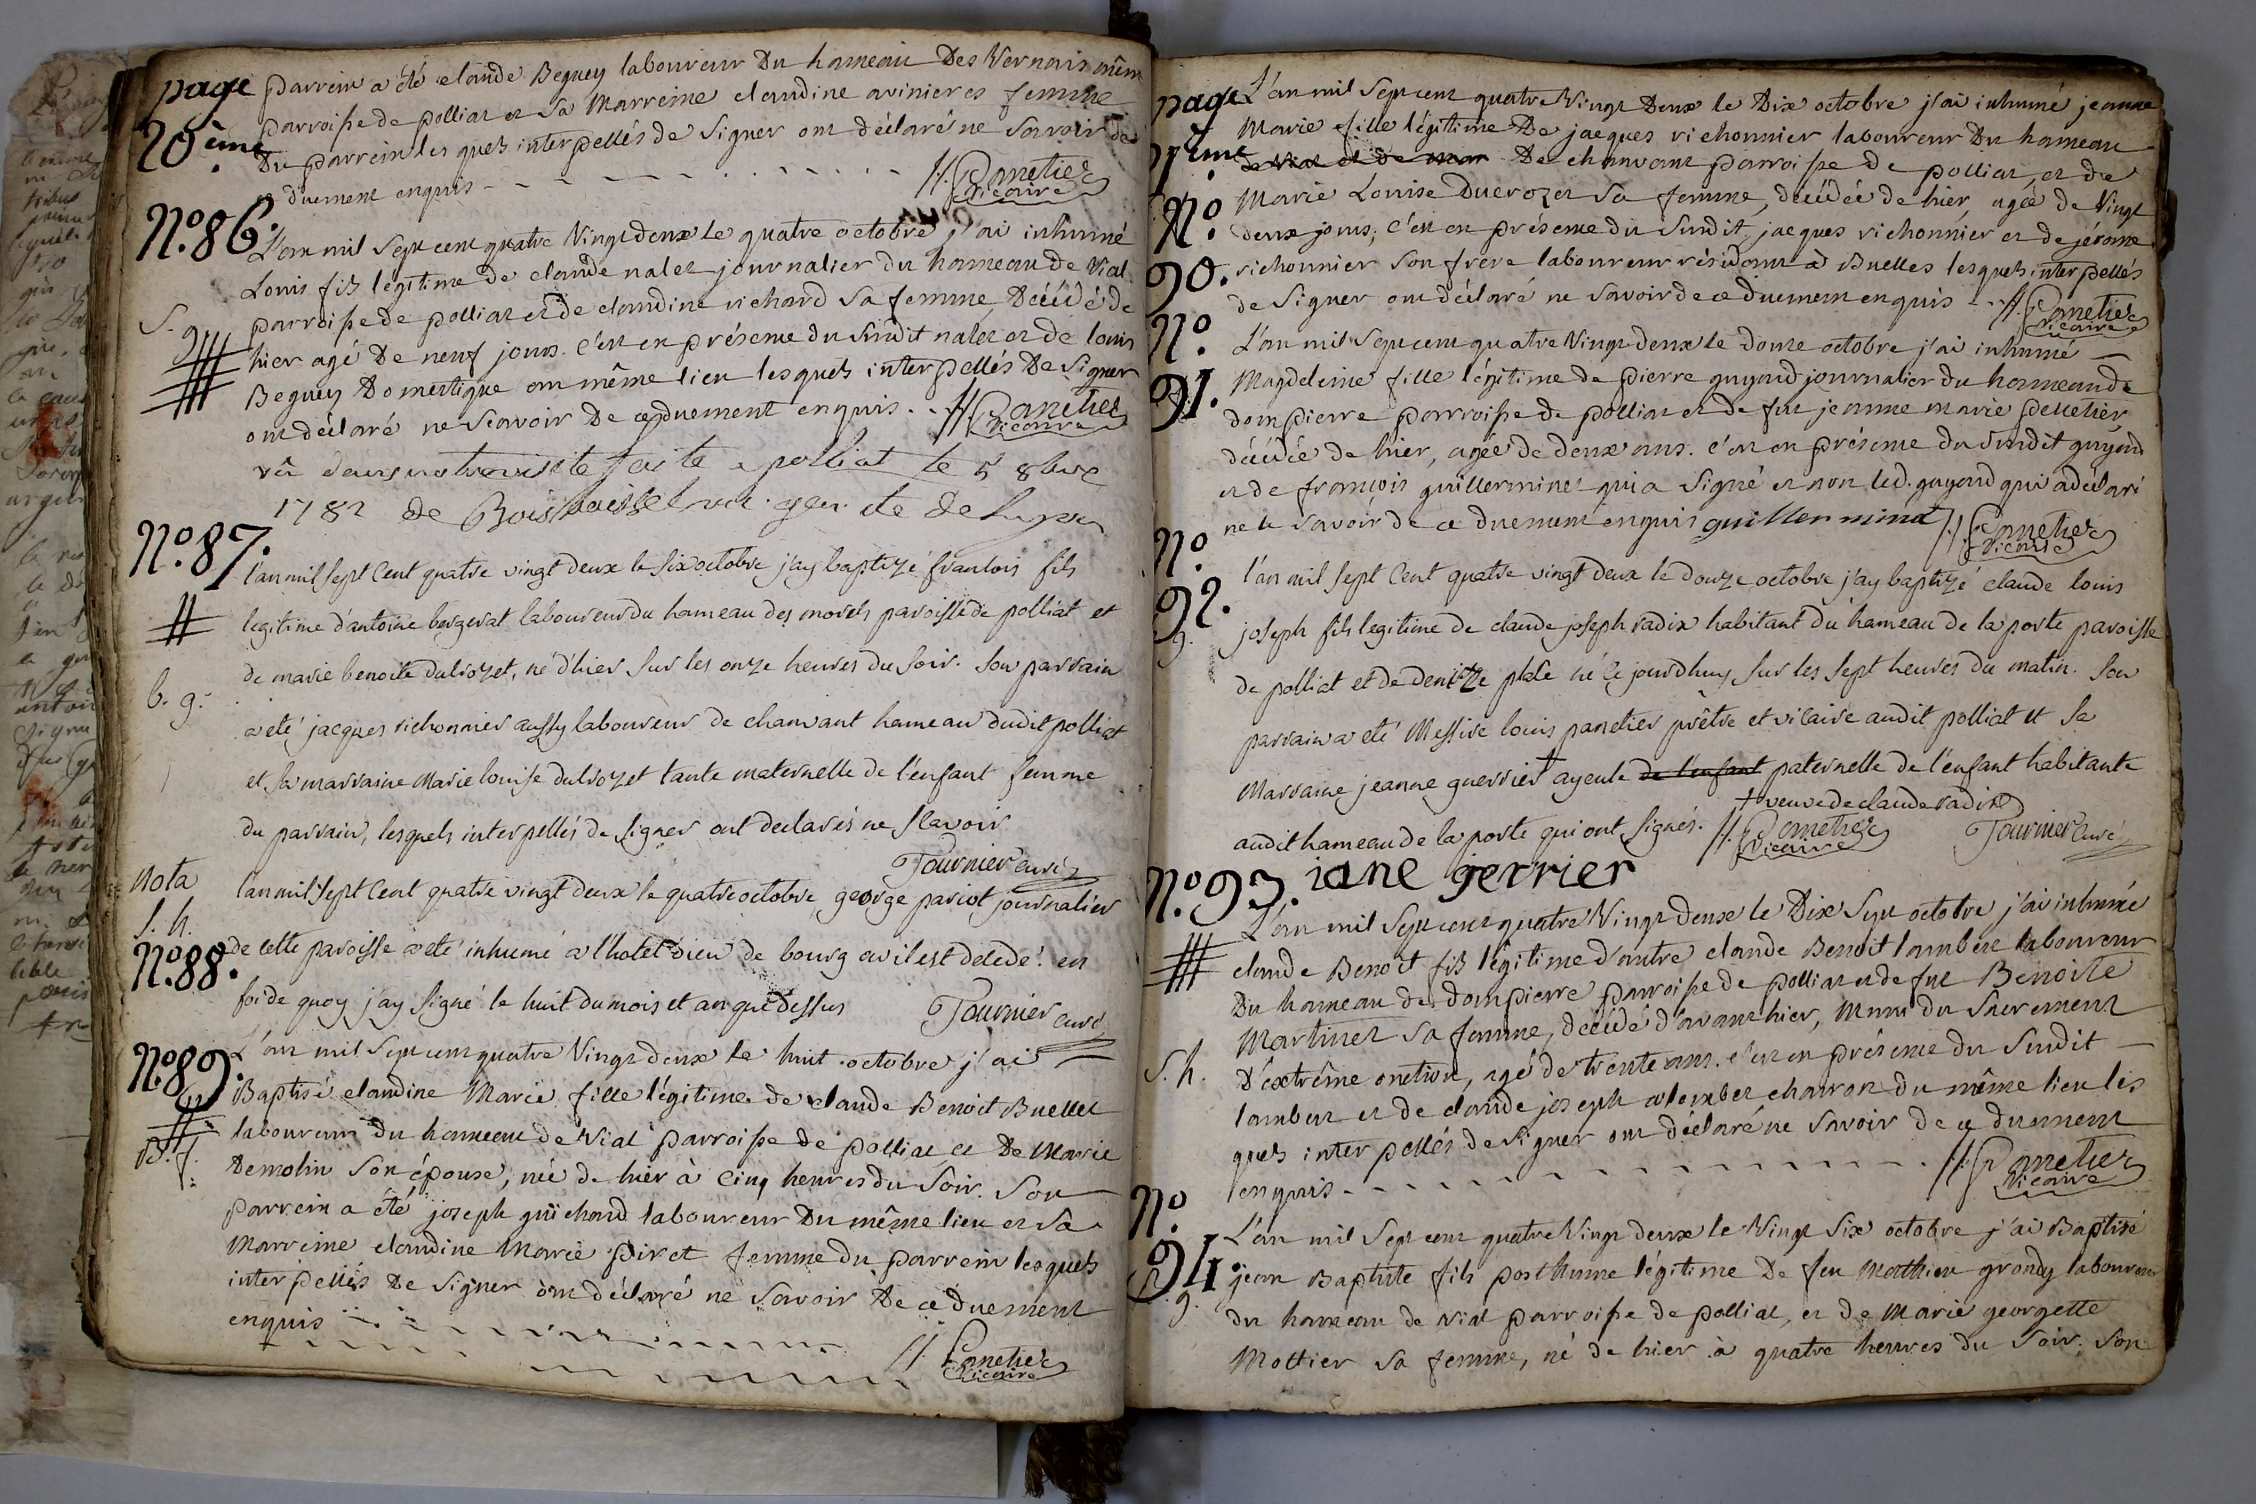 page
20ème
parrein a été claude Beguey laboureur Du hameau Des Vernais même
parroisse de polliat et sa Marreine claudine avinieres femme
Du parrein les quels interpellés de signer ont déclaré ne savoir de
ce duement enquis
Panetier
vicaire
No. 86.
L'an mil sept cent quatre Vingt deux le quatre octobre j'ai inhumé
Louis fils légitime de claude nalet journalier du hameau de Vial
parroisse de polliat et de claudine richard sa femme, Décédé de
hier agé De neuf jours. c'est en présence du Susdit nalet et de louis
Beguey Domestique au même lieu lesquels interpellés De signer
ont déclaré ne Scavoir De ce duement enquis.
Panetier
vicaire
S. g.
vû dans notre visite faite a polliat le 5 8bre
1782 de Bois boissel vic. gen. de Lyon
No. 87.
l'an mil sept Cent quatre vingt deux le six octobre j'ay baptizé francois fils
legitime d'antoine bergerat laboureur du hameau des morels paroisse de polliat et
de marie benoite ducrozet, né d'hier sur les onze heures du soir. Son parrain
a eté jacques richonnier aussy laboureur de chanvant hameau dudit polliat
et sa marraine Marie louise ducrozet tante maternelle de l'enfant femme
du parrain, lesquels interpellés de signer ont declarés ne scavoir
b. g.
Tournier curé
nota
S. h.
No. 88.
l'an mil sept Cent quatre vingt deux le quatre octobre george pariot journalier
de cette paroisse a eté inhumé a l'hotel Dieu de bourg ou il est decedé. en
foi de quoy j'ay signé le huit du mois et an que Dessus
Tournier curé
No. 89.
L'an mil sept cent quatre Vingt deux le huit octobre j'ai
Baptisé claudine Marie fille légitime de claude Benoit Buellet
laboureur du hameau de Vial parroisse de polliat et De Marie
Demolin son épouse, née de hier à Cinq heures du Soir. Son
parrein a été joseph guichard laboureur Du même lieu et sa
Marreine claudine Marie piret femme du parrein lesquels
interpellés De signer ont déclaré ne savoir De ce duement
enquis
Panetier
vicaire
page
L'an mil sept cent quatre Vingt Deux le Dix octobre j'ai inhumé jeanne
Marie fille légitime De jacques richonnier laboureur Du hameau
de Vial et de mar De chanvant parroisse de polliat, et de
Marie Louise Ducrozet sa femme, décédée de hier, agée de Vingt
deux jours; c'est en présence du Susdit jacques richonnier et de jérome
richonnier son frere laboureur résidant à Buelles lesquels interpellés
de signer ont déclaré ne savoir de ce duement enquis
No.
90.
Panetier
vicaire
No.
91.
L'an mil sept cent quatre Vingt deux le douze octobre j'ai inhumé
Magdeleine fille légitime de pierre guyard journalier du hameau de
dompierre parroisse de polliat et de fue jeanne marie pelletier
décédée de hier, agée de deux ans. c'est en présence du Susdit guyard
et de françois guillerminet qui a signé et non led. guyard qui a déclaré
ne le savoir de ce duement enquis guillerminet
Panetier
vicaire
No.
92.
g.
l'an mil sept Cent quatre vingt deux le douze octobre j'ay baptizé claude louis
joseph fils legitime de claude joseph radix habitant du hameau de la poste paroisse
de polliat et de denize né ce jourdhuy sur les sept heures du matin. Son
parrain a eté Messire louis panetier prêtre et vicaire audit polliat et sa
Marraine jeanne guerrier ayeule de l'enfant paternelle de l'enfant habitante
† veuve de claude radix
audit hameau de la poste qui ont signés.
Panetier
vicaire
Tournier curé
iane gerrier
No. 93.
L'an mil sept cent quatre Vingt deux le Dix sept octobre j'ai inhumé
claude Benoit fils légitime d'autre claude Benoit lambert laboureur
Du hameau de dompierre parroisse de polliat et de fue Benoite
Martinet sa femme, décédé d'avant hier, Muni du sacrement
D'extrême onction, agé de trente ans. c'est en présence du Susdit
lambert et de claude joseph alombet charron du même lieu les
quels interpellés de signer ont déclaré ne savoir de ce duement
enquis
S. h.
Panetier
vicaire
No.
94.
g.
L'an mil sept cent quatre Vingt deux le Vingt six octobre j'ai Baptisé
jean Baptiste fils posthume légitime De feu Mathieu grandy laboureur
du hameau de Vial parroisse de polliat, et de Marie georgette
Mottier sa femme, né de hier à quatre heures du Soir. Son